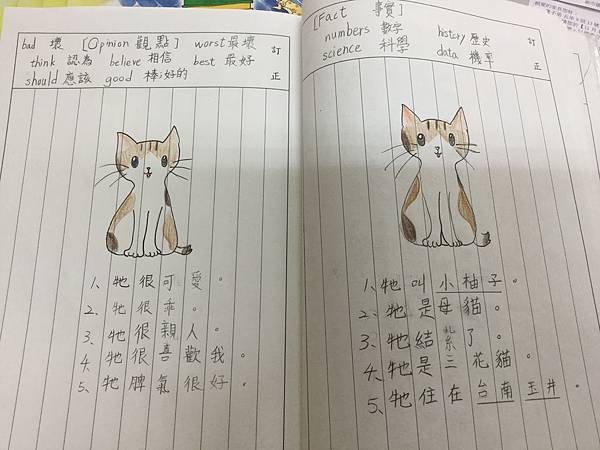 bad 壞 [Opinion 觀點] worst最壞
think 認為 believe 相信 best 最好
should 應該 good 棒;好的
訂
正
1、牠很可愛。
2、牠很乖。
3、牠很親人。
4、牠很喜歡我。
5、牠脾氣很好。
[Fact 事實]
numbers 數字 history 歷史
science 科學 data 機率
訂
正
1、牠叫小柚子。
2、牠是母貓。
3、牠結紮了。
4、牠是三花貓。
5、牠住在台南玉井。